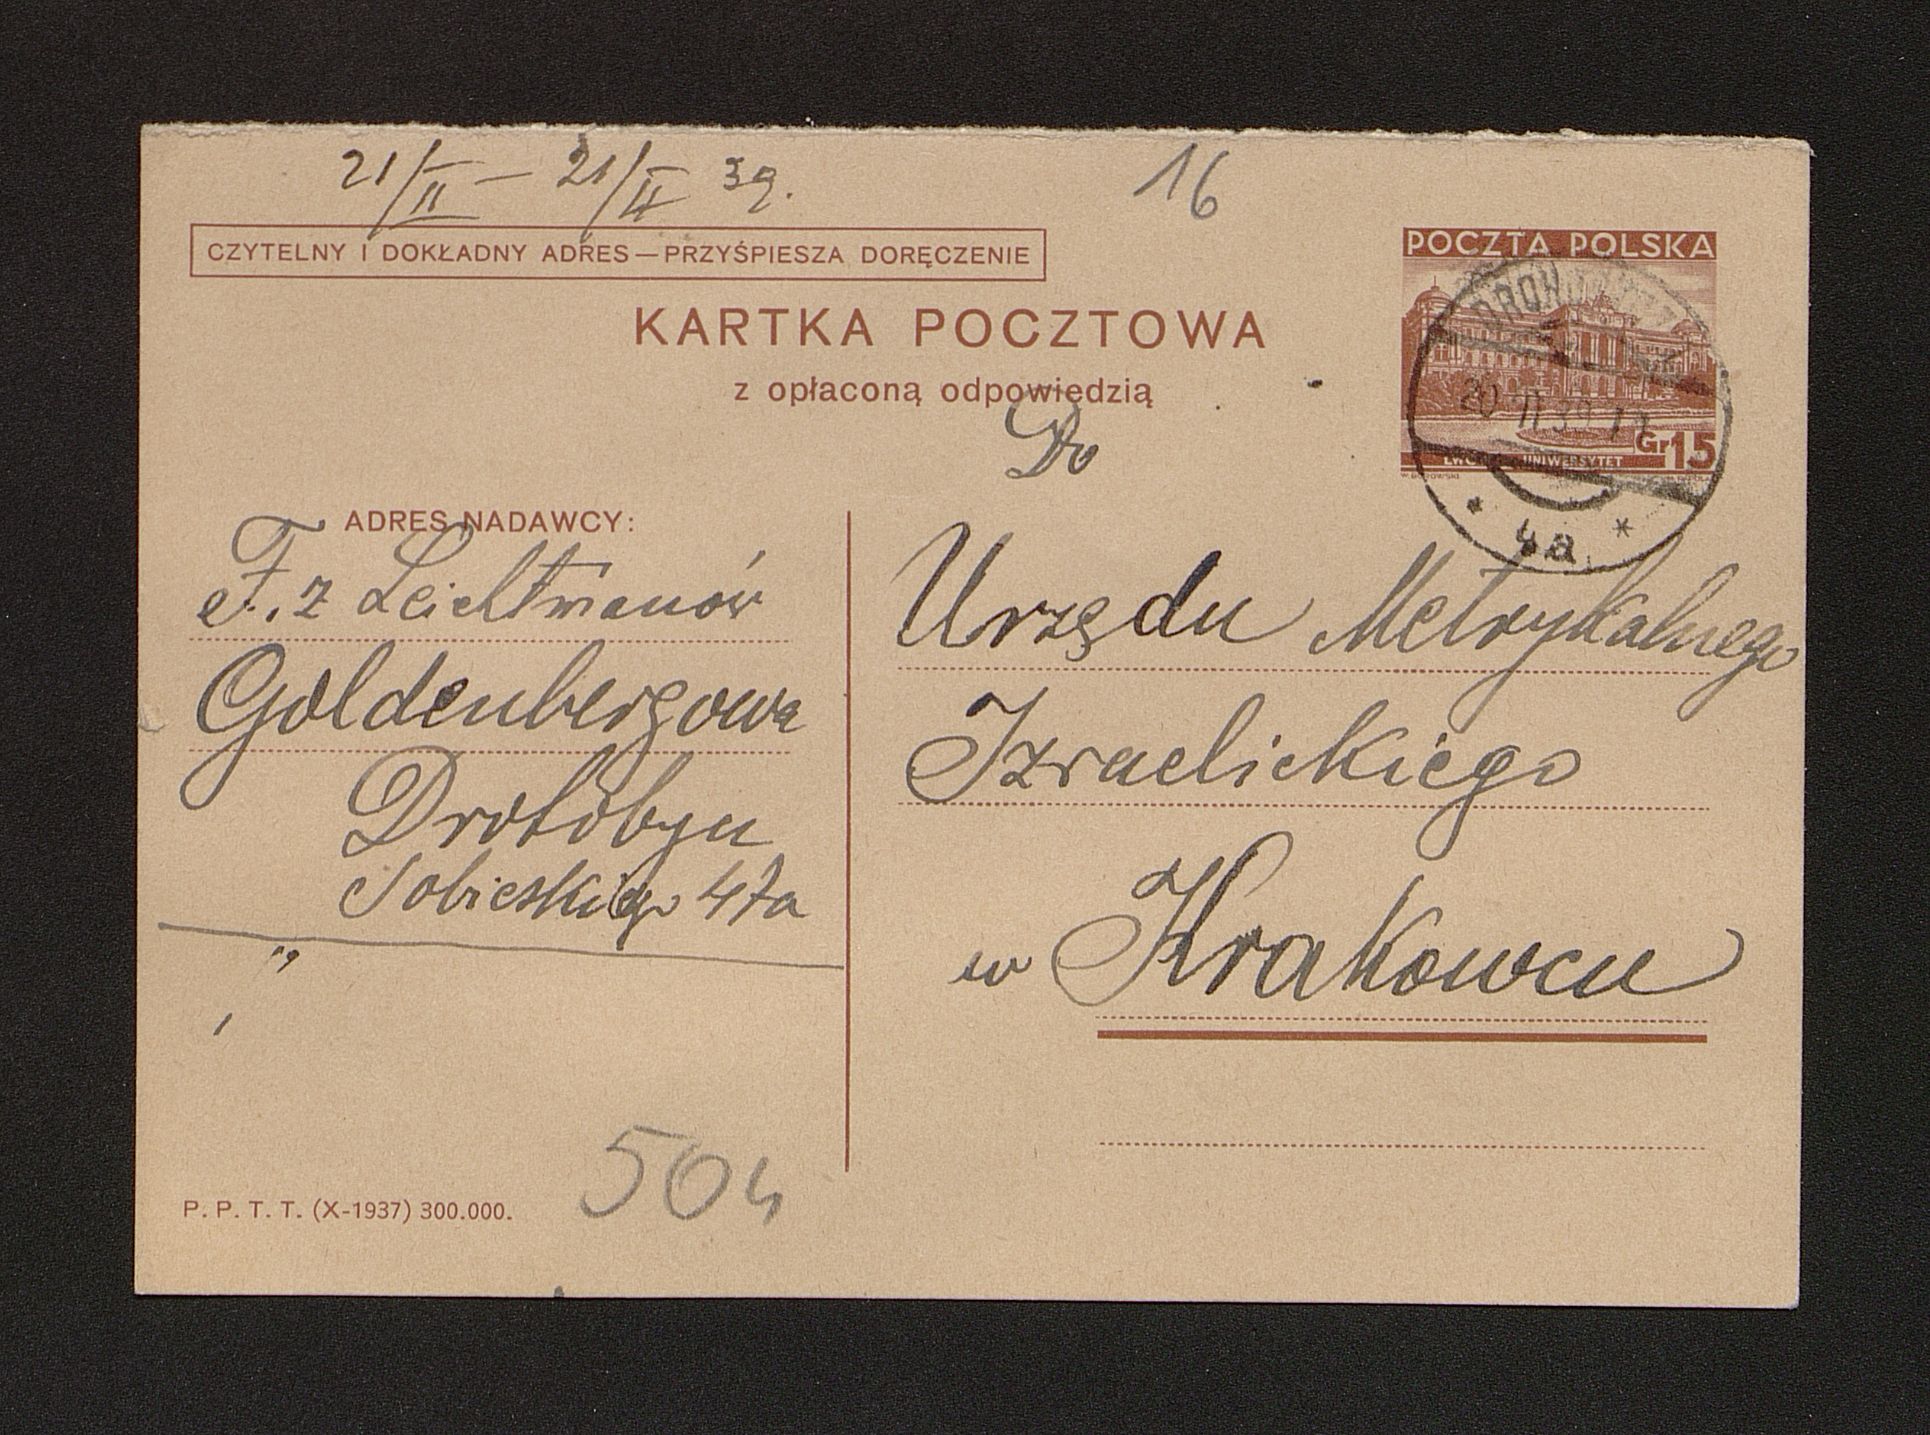 21/II — 21/II 39.
16
CZYTELNY I DOKŁADNY ADRES — PRZYŚPIESZA DORĘCZENIE
POCZTA POLSKA
KARTKA POCZTOWA
z opłaconą odpowiedzią
20 II 39
Gr 15
UNIWERSYTET
4a
Do
ADRES NADAWCY:
F. z Leichtmanów
Goldenbergowa
Drohobycz
Sobieskiego 47a
Urzędu Metrykalnego
Izraelickiego
w Krakowcu
504
P. P. T. T. (X-1937) 300.000.